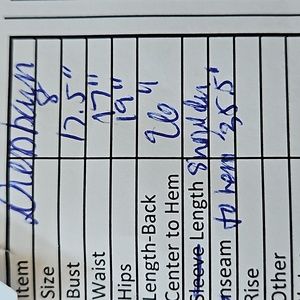 Item
Size 8
Bust 17.5"
Waist 17"
Hips 19"
Length-Back 26"
Center to Hem
Sleeve Length Shoulder
Inseam to hem 35.5"
Rise
Other